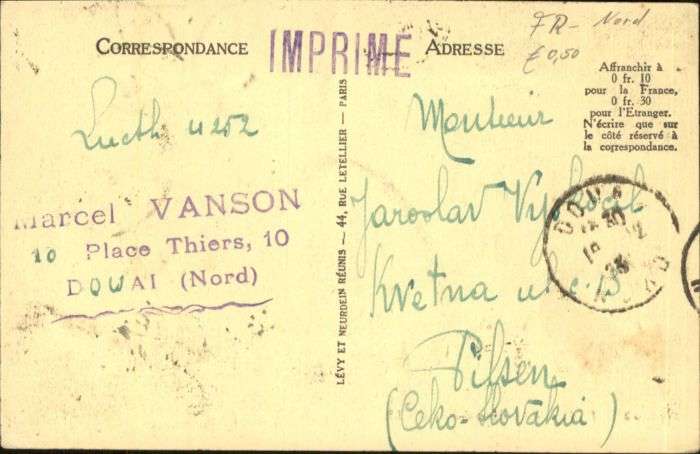 FR- Nord
£ 0,50
CORRESPONDANCE
IMPRIMÉ
ADRESSE
Affranchir à
0 fr. 10
pour la France,
0 fr. 30
pour l'Étranger.
N'écrire que sur
le côté réservé à
la correspondance.
4252
Marcel VANSON
10 Place Thiers, 10
DOUAI (Nord)
LÉVY ET NEURDEIN RÉUNIS — 44, RUE LETELLIER — PARIS
Monsieur
Jaroslav
Kvetna ul. c.
Pilsen
(Ceko-Slovakia)
DOUAI
NORD